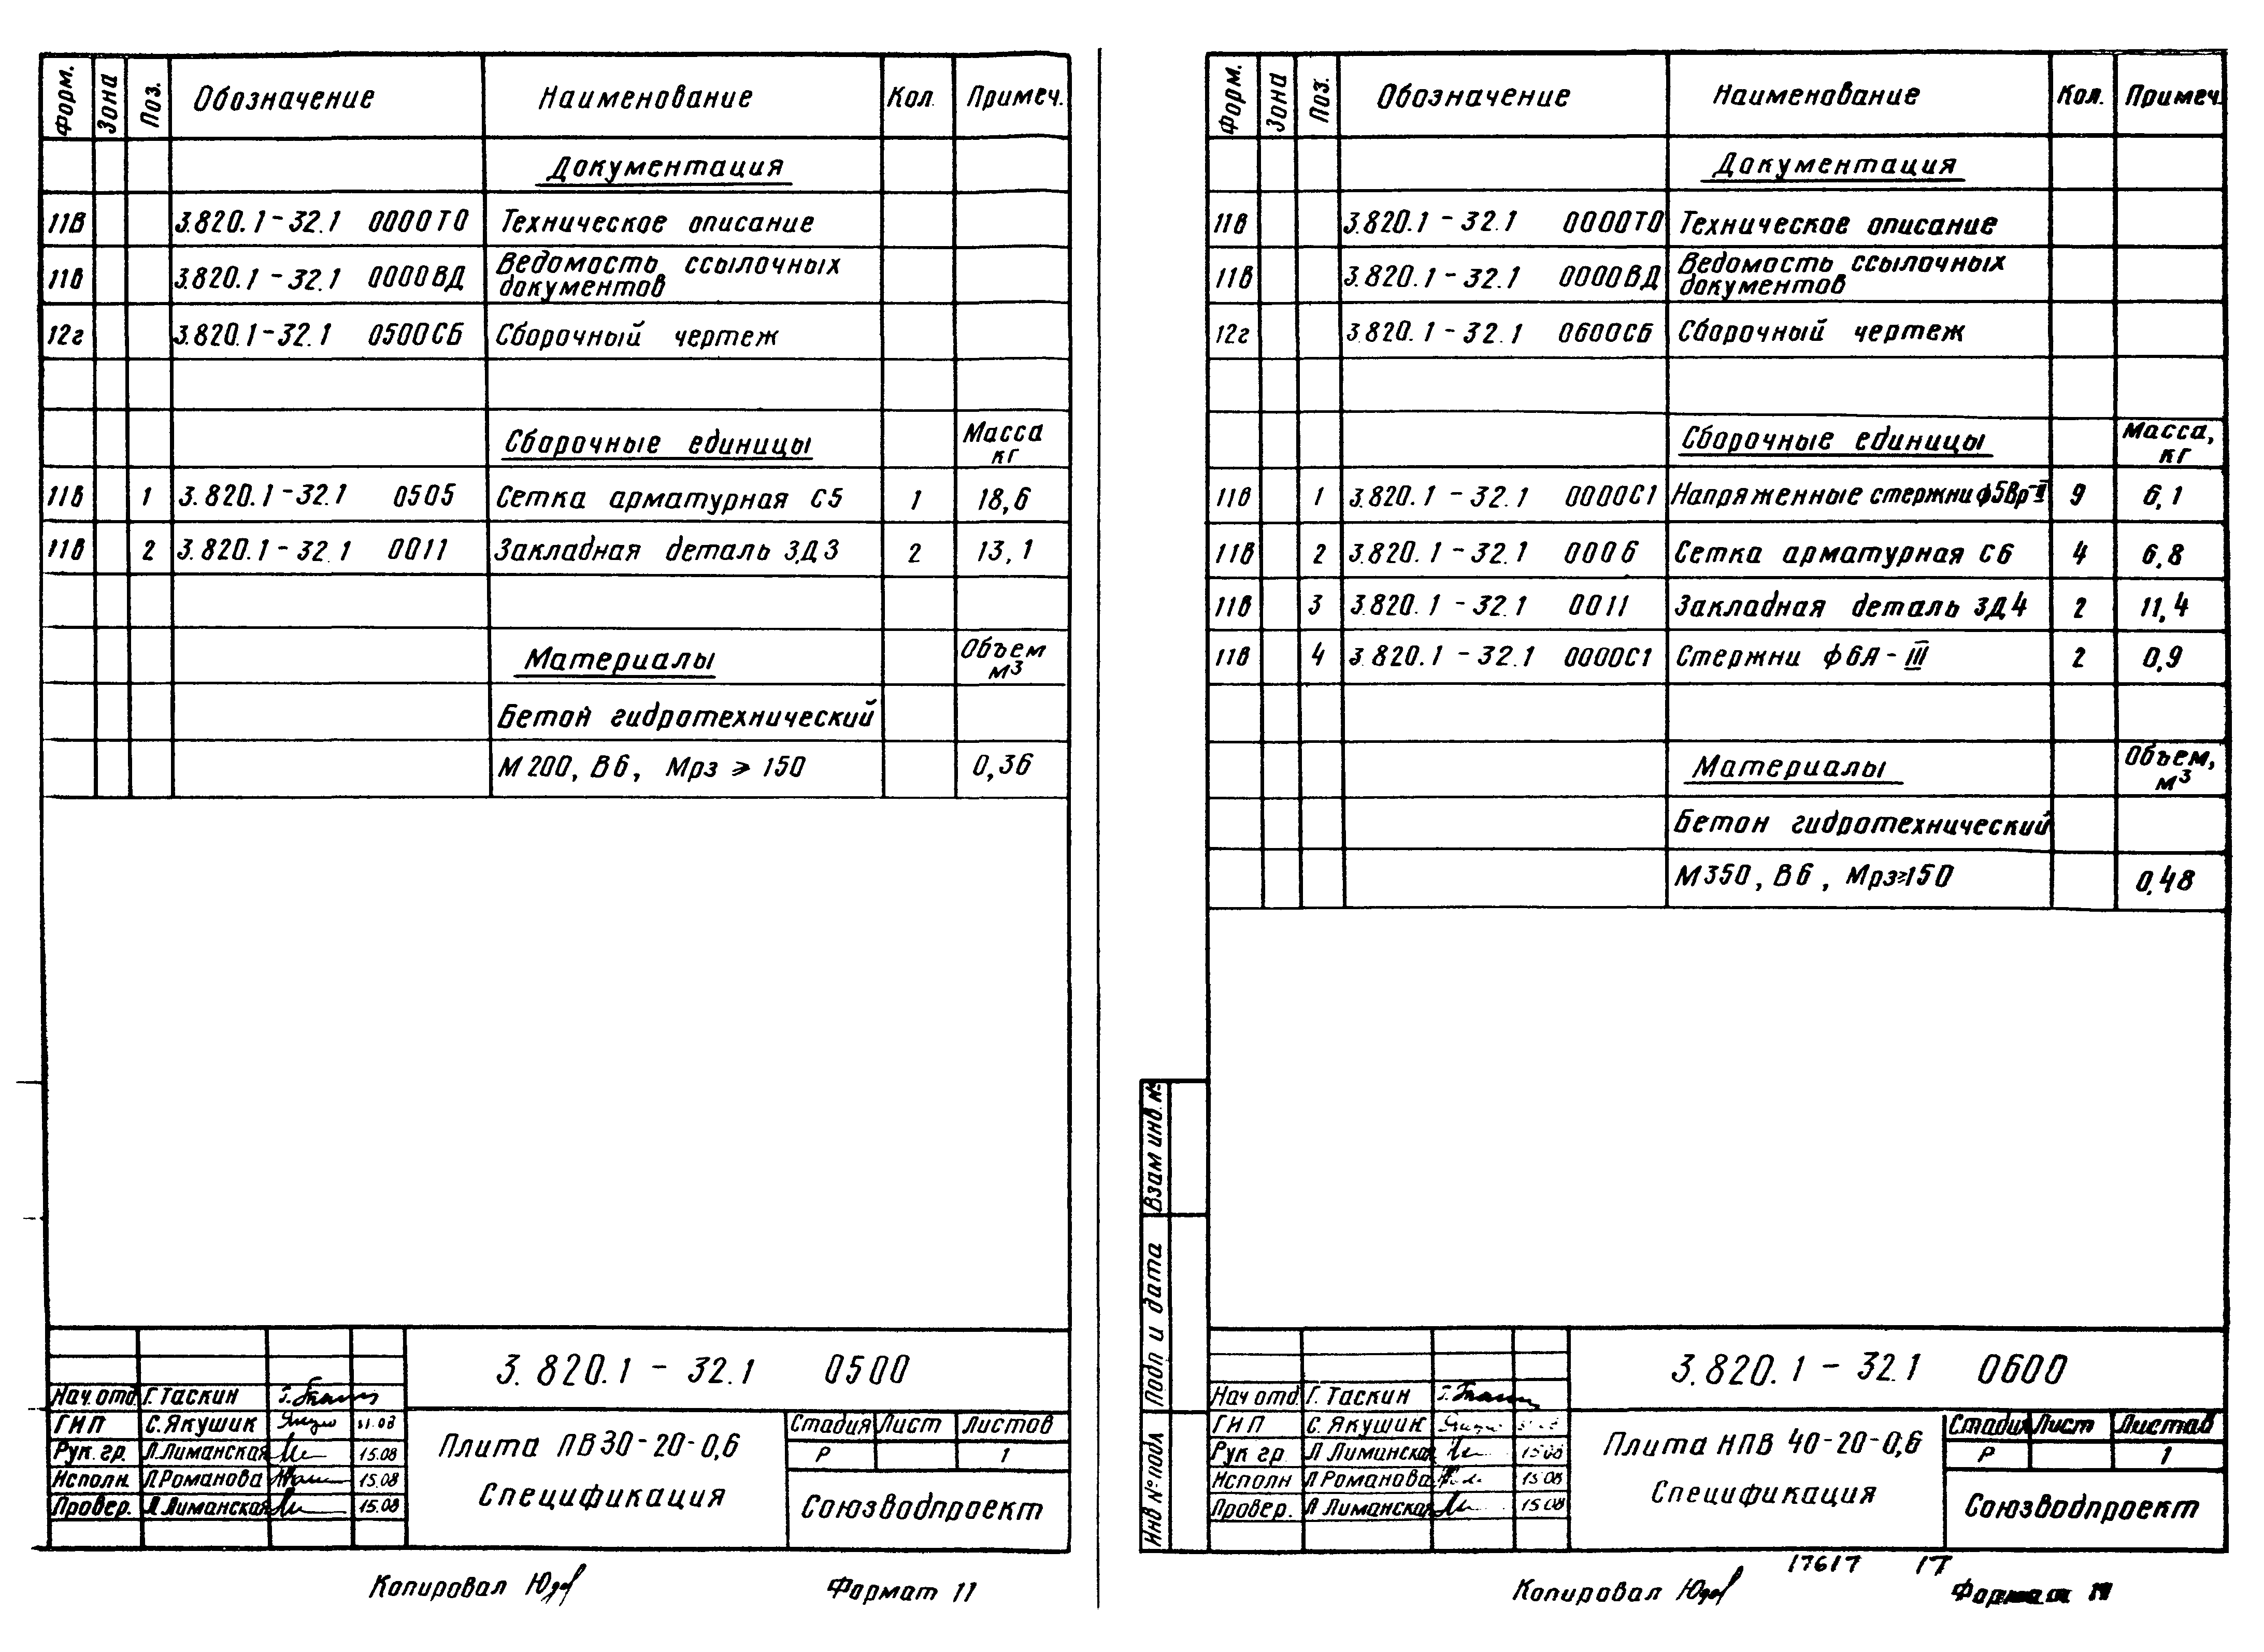 Форм. Зона Поз. Обозначение Наименование Кол. Примеч.
Документация
11в 3.820.1-32.1 0000ТО Техническое описание
11в 3.820.1-32.1 0000ВД Ведомость ссылочных
документов
12г 3.820.1-32.1 0500СБ Сборочный чертеж
Сборочные единицы Масса
кг
11в 1 3.820.1-32.1 0505 Сетка арматурная С5 1 18,6
11в 2 3.820.1-32.1 0011 Закладная деталь ЗД3 2 13,1
Материалы Объем
м³
Бетон гидротехнический
М200, В6, Мрз ⩾ 150 0,36
3.820.1-32.1 0500
Нач отд. Г. Таскин
ГИП С. Якушик 31.08
Рук. гр. Л. Лиманская 15.08
Исполн. Л Романова 15.08
Провер. Л. Лиманская 15.08
Плита ПВ30-20-0,6
Спецификация
Стадия Лист Листов
Р 1
Союзводпроект
Копировал
Формат 11
Форм. Зона Поз. Обозначение Наименование Кол. Примеч.
Документация
11в 3.820.1-32.1 0000ТО Техническое описание
11в 3.820.1-32.1 0000ВД Ведомость ссылочных
документов
12г 3.820.1-32.1 0600СБ Сборочный чертеж
Сборочные единицы Масса,
кг
11в 1 3.820.1-32.1 0000С1 Напряженные стержни ϕ5Вр-II 9 6,1
11в 2 3.820.1-32.1 0006 Сетка арматурная С6 4 6,8
11в 3 3.820.1-32.1 0011 Закладная деталь ЗД4 2 11,4
11в 4 3.820.1-32.1 0000С1 Стержни ϕ6А-III 2 0,9
Материалы Объем,
м³
Бетон гидротехнический
М350, В6, Мрз⩾150 0,48
Взам инв. №
Подп и дата
Инв № подл
3.820.1-32.1 0600
Нач отд. Г. Таскин
ГИП С. Якушик
Рук гр. Л Лиманская 15.08
Исполн Л Романова 15.08
Провер. Л Лиманская 15.08
Плита НПВ 40-20-0,6
Спецификация
Стадия Лист Листов
Р 1
Союзводпроект
17617 17
Копировал
Формат 11